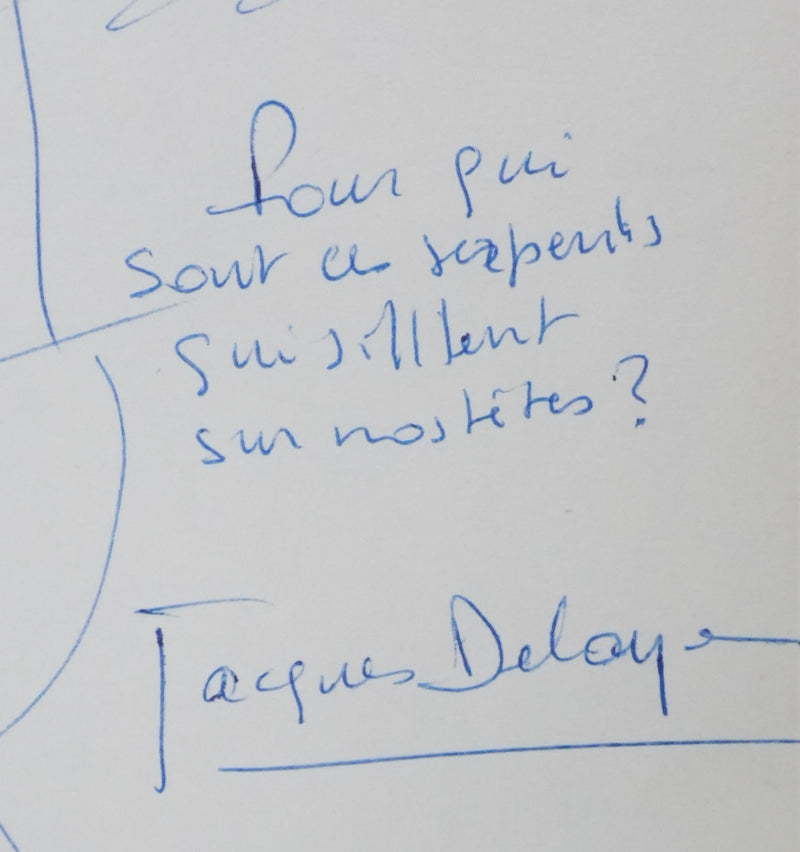 Pour qui
sont ces serpents
qui sifflent
sur nos têtes ?
Jacques Delaye